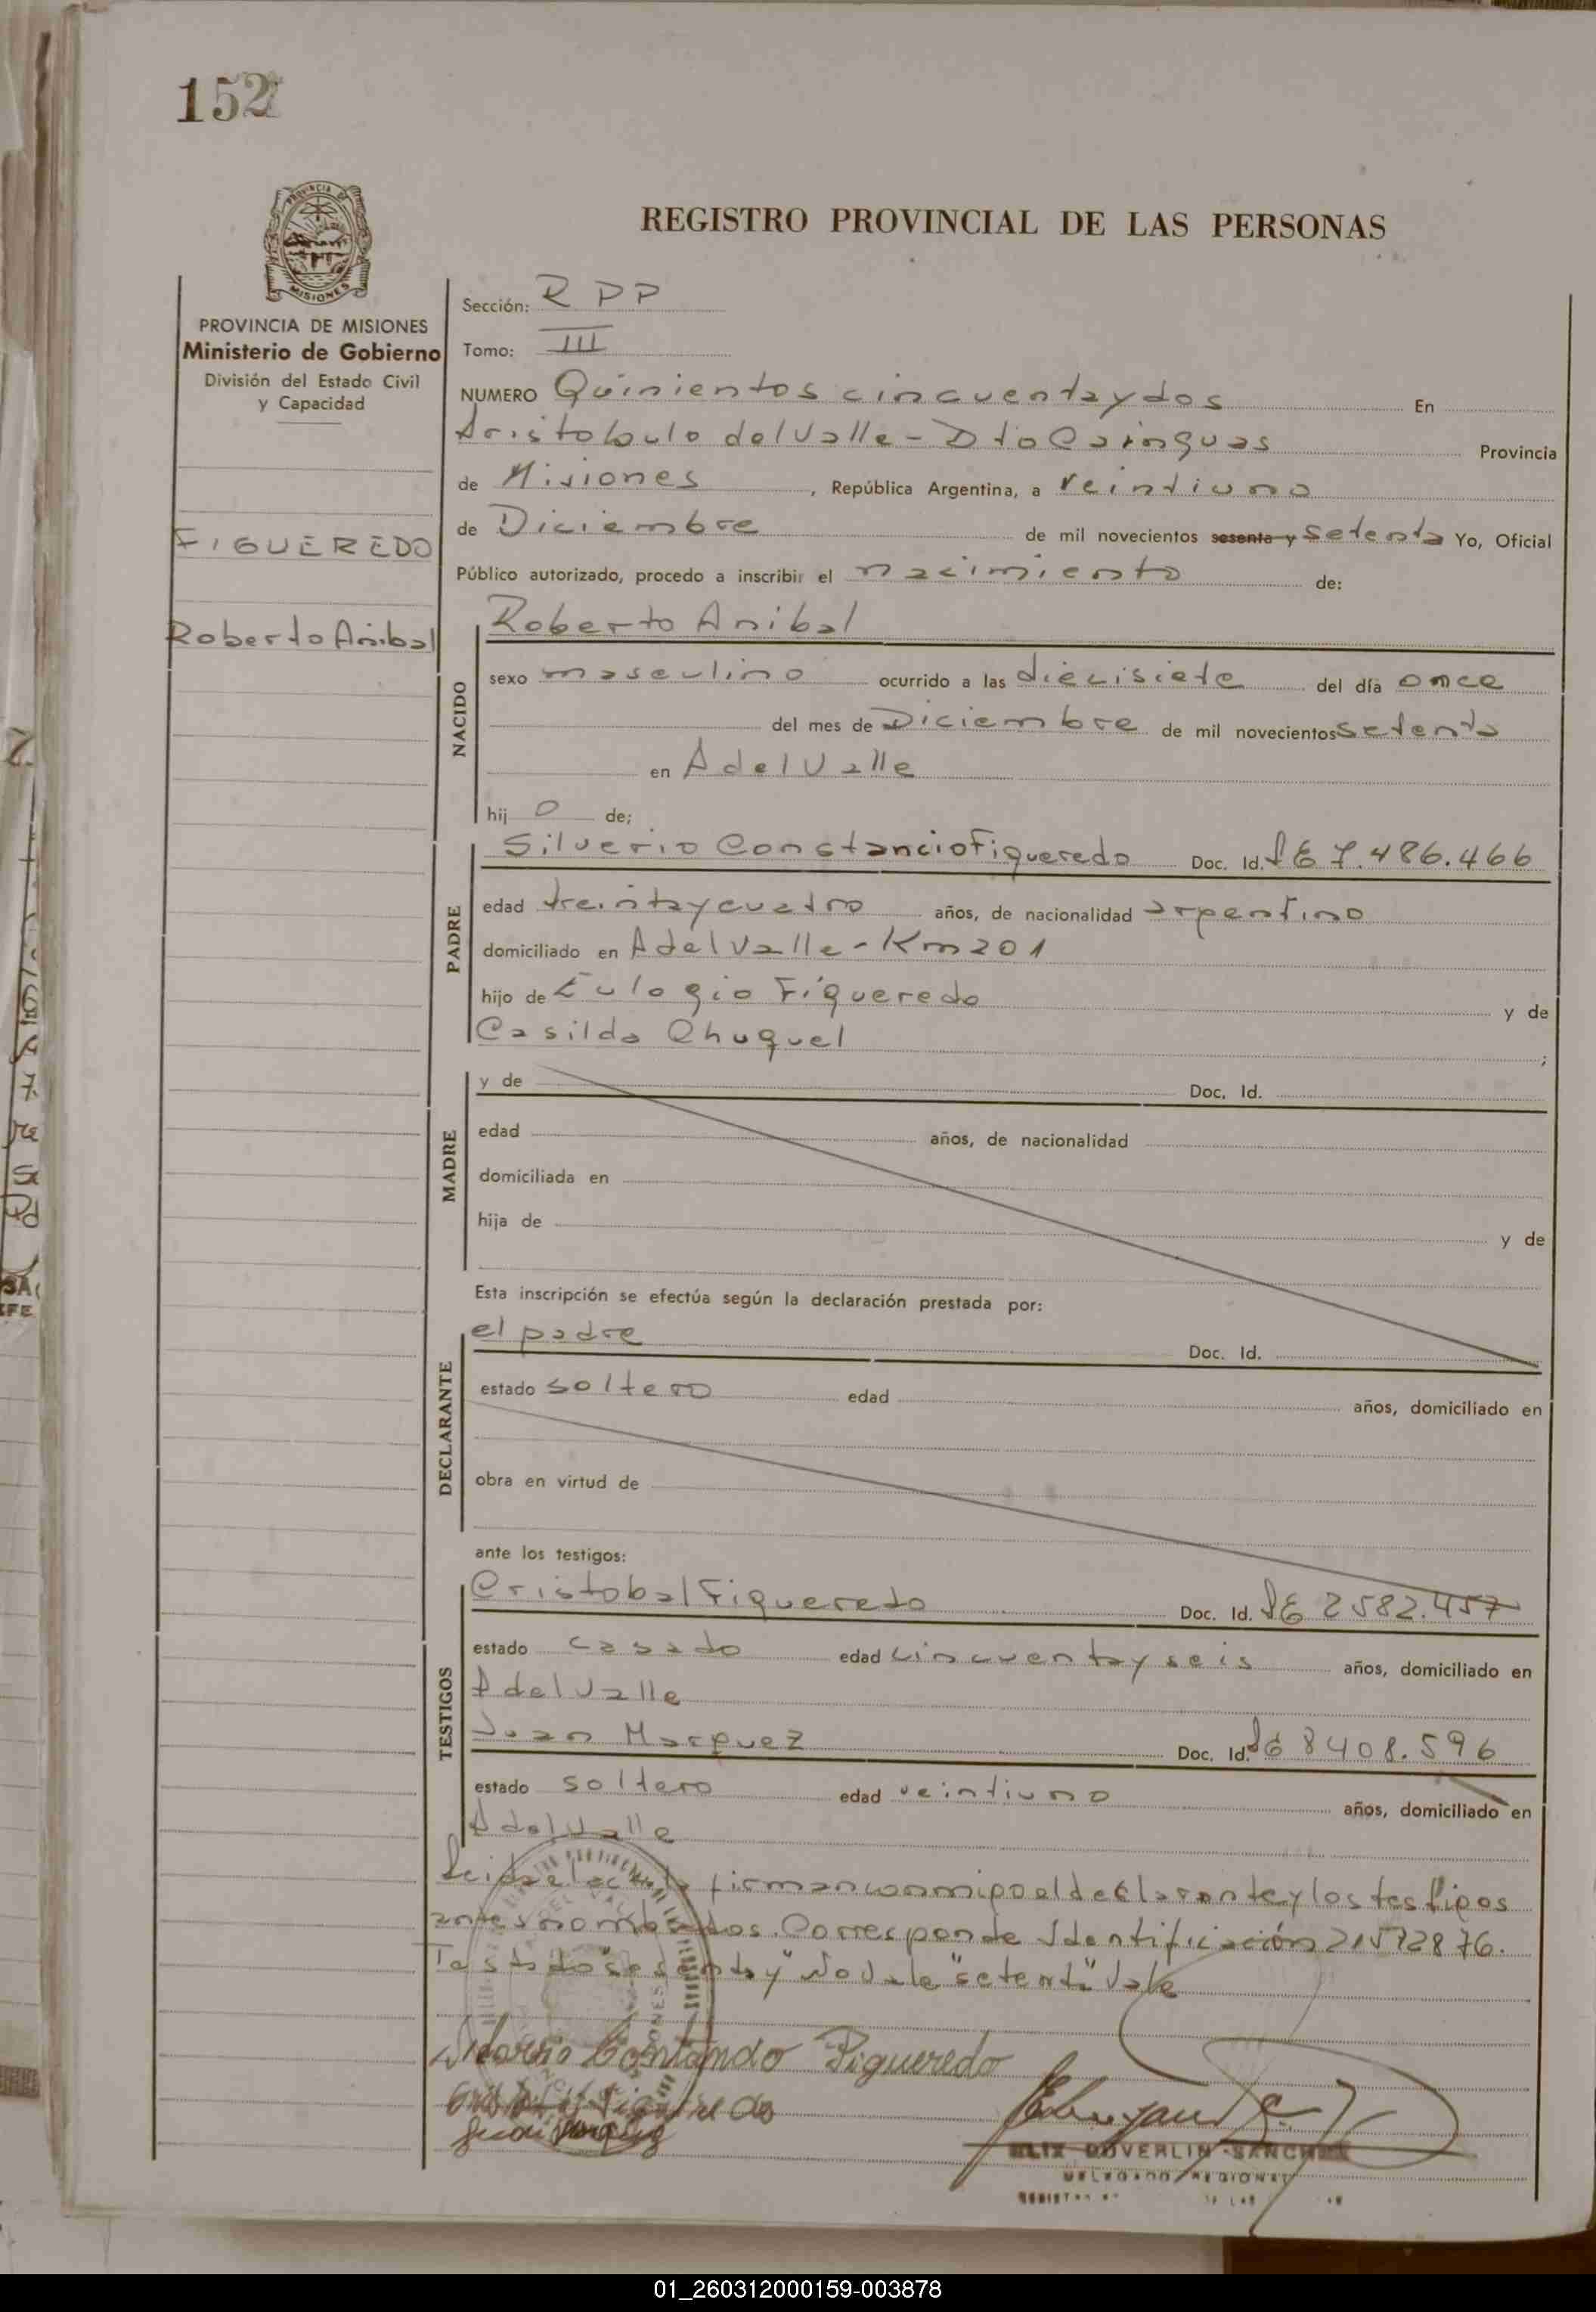 152
REGISTRO PROVINCIAL DE LAS PERSONAS
PROVINCIA DE
MISIONES
PROVINCIA DE MISIONES
Ministerio de Gobierno
División del Estado Civil
y Capacidad
FIGUEREDO
Roberto Anibal
Sección: R P P
Tomo: III
NUMERO Quinientos cincuenta y dos En
Aristobulo del Valle - Dto Cainguas Provincia
de Misiones, República Argentina, a veintiuno
de Diciembre de mil novecientos sesenta y setenta Yo, Oficial
Público autorizado, procedo a inscribir el nacimiento de:
NACIDO
Roberto Anibal
sexo masculino ocurrido a las diecisiete del día once
del mes de Diciembre de mil novecientos setenta
en A del Valle
hij o de;
PADRE
Silverio Constancio Figueredo Doc. Id. LE 7.486.466
edad treinta y cuatro años, de nacionalidad argentino
domiciliado en A del Valle - Km 201
hijo de Eulogio Figueredo y de
Casilda Chuquel ;
MADRE
y de Doc. Id.
edad años, de nacionalidad
domiciliada en
hija de y de
Esta inscripción se efectúa según la declaración prestada por:
DECLARANTE
el padre Doc. Id.
estado soltero edad años, domiciliado en
obra en virtud de
ante los testigos:
TESTIGOS
Cristobal Figueredo Doc. Id. LE 2582.457
estado casado edad cincuenta y seis años, domiciliado en
A del Valle
Juan Marquez Doc. Id. LE 8408.596
estado soltero edad veintiuno años, domiciliado en
A del Valle
Leida el acta firman conmigo el declarante y los testigos
antes nombrados. Corresponde Identificación 21572876.
Testado "sesenta y" No vale "setenta" Vale
Figueredo
DOVERLIN SANCHEZ
DELEGADO REGIONAL
01_260312000159-003878